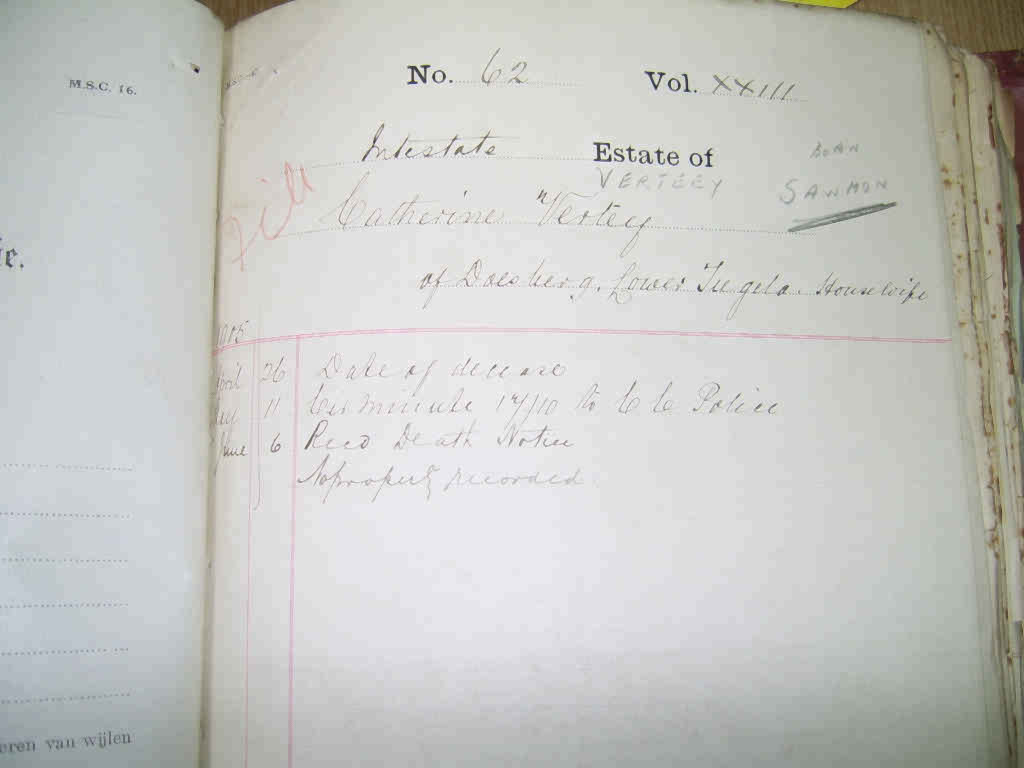 M.S.C. 16.
No. 62 Vol. XXIII
Intestate Estate of
VERTEEY BORN SAWMON
File
Catherine Vertey
of Doesberg, Lower Tugela. Housewife
1905
April 26 Date of decease
11 Cir minute 17/10 to C C Police
June 6 Recd Death Notice
No property recorded
eren van wijlen